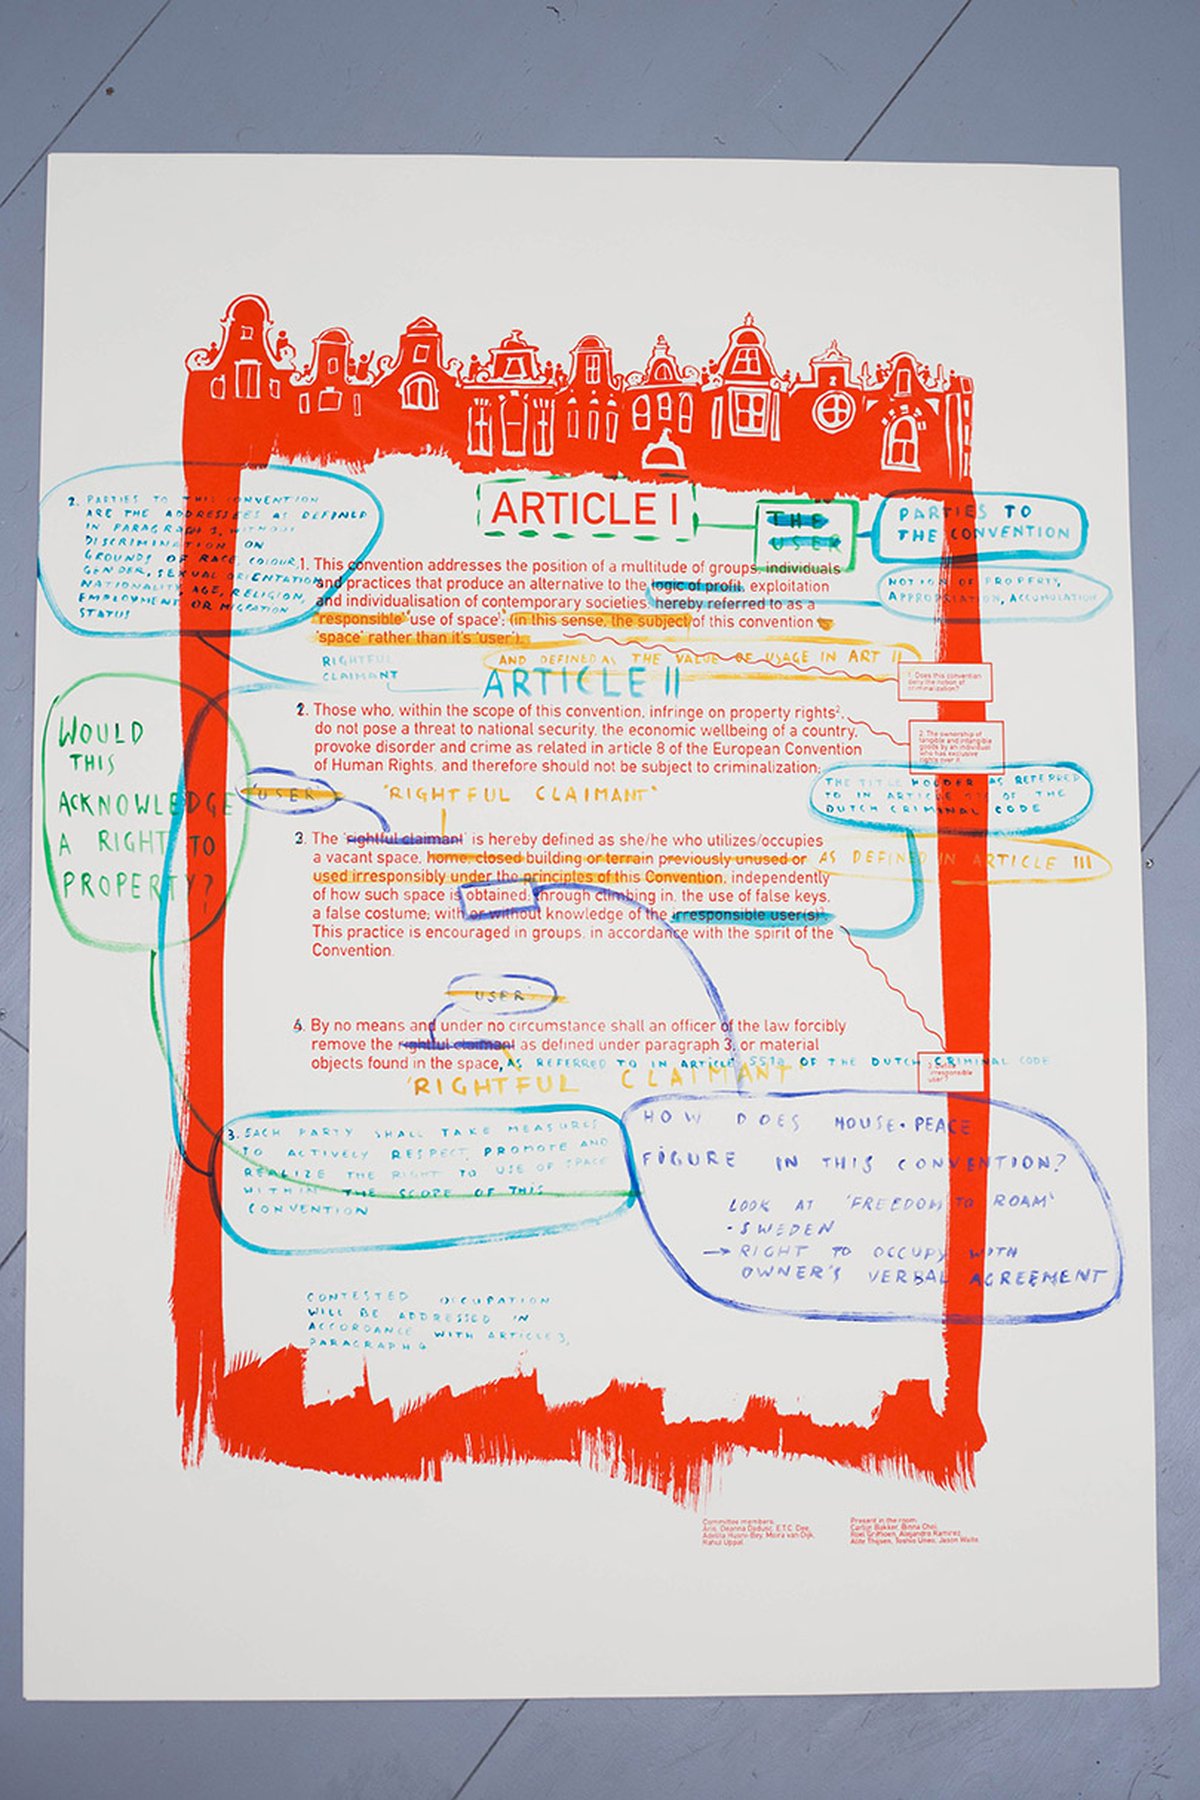 ARTICLE I
THE
USER
PARTIES TO
THE CONVENTION
2. PARTIES TO THIS CONVENTION
ARE THE ADDRESSEES AS DEFINED
IN PARAGRAPH 1, WITHOUT
DISCRIMINATION ON
GROUNDS OF RACE, COLOUR,
GENDER, SEXUAL ORIENTATION
NATIONALITY, AGE, RELIGION,
EMPLOYMENT OR MIGRATION
STATUS
1. This convention addresses the position of a multitude of groups, individuals
and practices that produce an alternative to the logic of profit, exploitation
and individualisation of contemporary societies, hereby referred to as a
'responsible' 'use of space'; (in this sense, the subject of this convention is
'space' rather than it's 'user').
NOTION OF PROPERTY,
APPROPRIATION, ACCUMULATION
AND DEFINED AS THE VALUE OF USAGE IN ART II
RIGHTFUL
CLAIMANT
ARTICLE II
1. Does this convention
deny the notion of
criminalization?
2. Those who, within the scope of this convention, infringe on property rights²,
do not pose a threat to national security, the economic wellbeing of a country,
provoke disorder and crime as related in article 8 of the European Convention
of Human Rights, and therefore should not be subject to criminalization;
2. The ownership of
tangible and intangible
goods by an individual
who has exclusive
rights over it.
WOULD
THIS
ACKNOWLEDGE
A RIGHT TO
PROPERTY?
'USER'
'RIGHTFUL CLAIMANT'
THE TITLE HOLDER AS REFERRED
TO IN ARTICLE OF THE
DUTCH CRIMINAL CODE
3. The 'rightful claimant' is hereby defined as she/he who utilizes/occupies
a vacant space, home, closed building or terrain previously unused or
used irresponsibly under the principles of this Convention, independently
of how such space is obtained; through climbing in, the use of false keys,
a false costume; with or without knowledge of the irresponsible user(s)³.
This practice is encouraged in groups, in accordance with the spirit of the
Convention.
AS DEFINED IN ARTICLE III
'USER'
4. By no means and under no circumstance shall an officer of the law forcibly
remove the rightful claimant as defined under paragraph 3, or material
objects found in the space, AS REFERRED TO IN ARTICLE 551a OF THE DUTCH CRIMINAL CODE
'RIGHTFUL CLAIMANT'
irresponsible
user?
3. EACH PARTY SHALL TAKE MEASURES
TO ACTIVELY RESPECT, PROMOTE AND
REALIZE THE RIGHT TO USE OF SPACE
WITHIN THE SCOPE OF THIS
CONVENTION
HOW DOES HOUSE-PEACE
FIGURE IN THIS CONVENTION?
LOOK AT 'FREEDOM TO ROAM'
- SWEDEN
→ RIGHT TO OCCUPY WITH
OWNER'S VERBAL AGREEMENT
CONTESTED OCCUPATION
WILL BE ADDRESSED IN
ACCORDANCE WITH ARTICLE 3,
PARAGRAPH 4
Committee members:
Aris, Deanna Dadusc, E.T.C. Dee,
Adelita Husni-Bey, Moira van Dijk,
Rahul Uppal
Present in the room:
Carlijn Bakker, Binna Choi,
Roel Griffioen, Alejandro Ramirez,
Alite Thijsen, Toshio Ueno, Jason Waite.